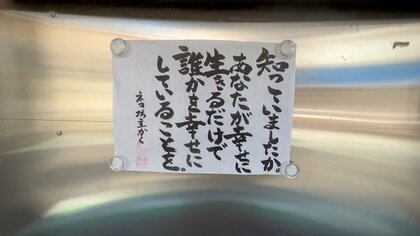 知っていましたか。
あなたが幸せに
生きるだけで
誰かを幸せに
していることを。